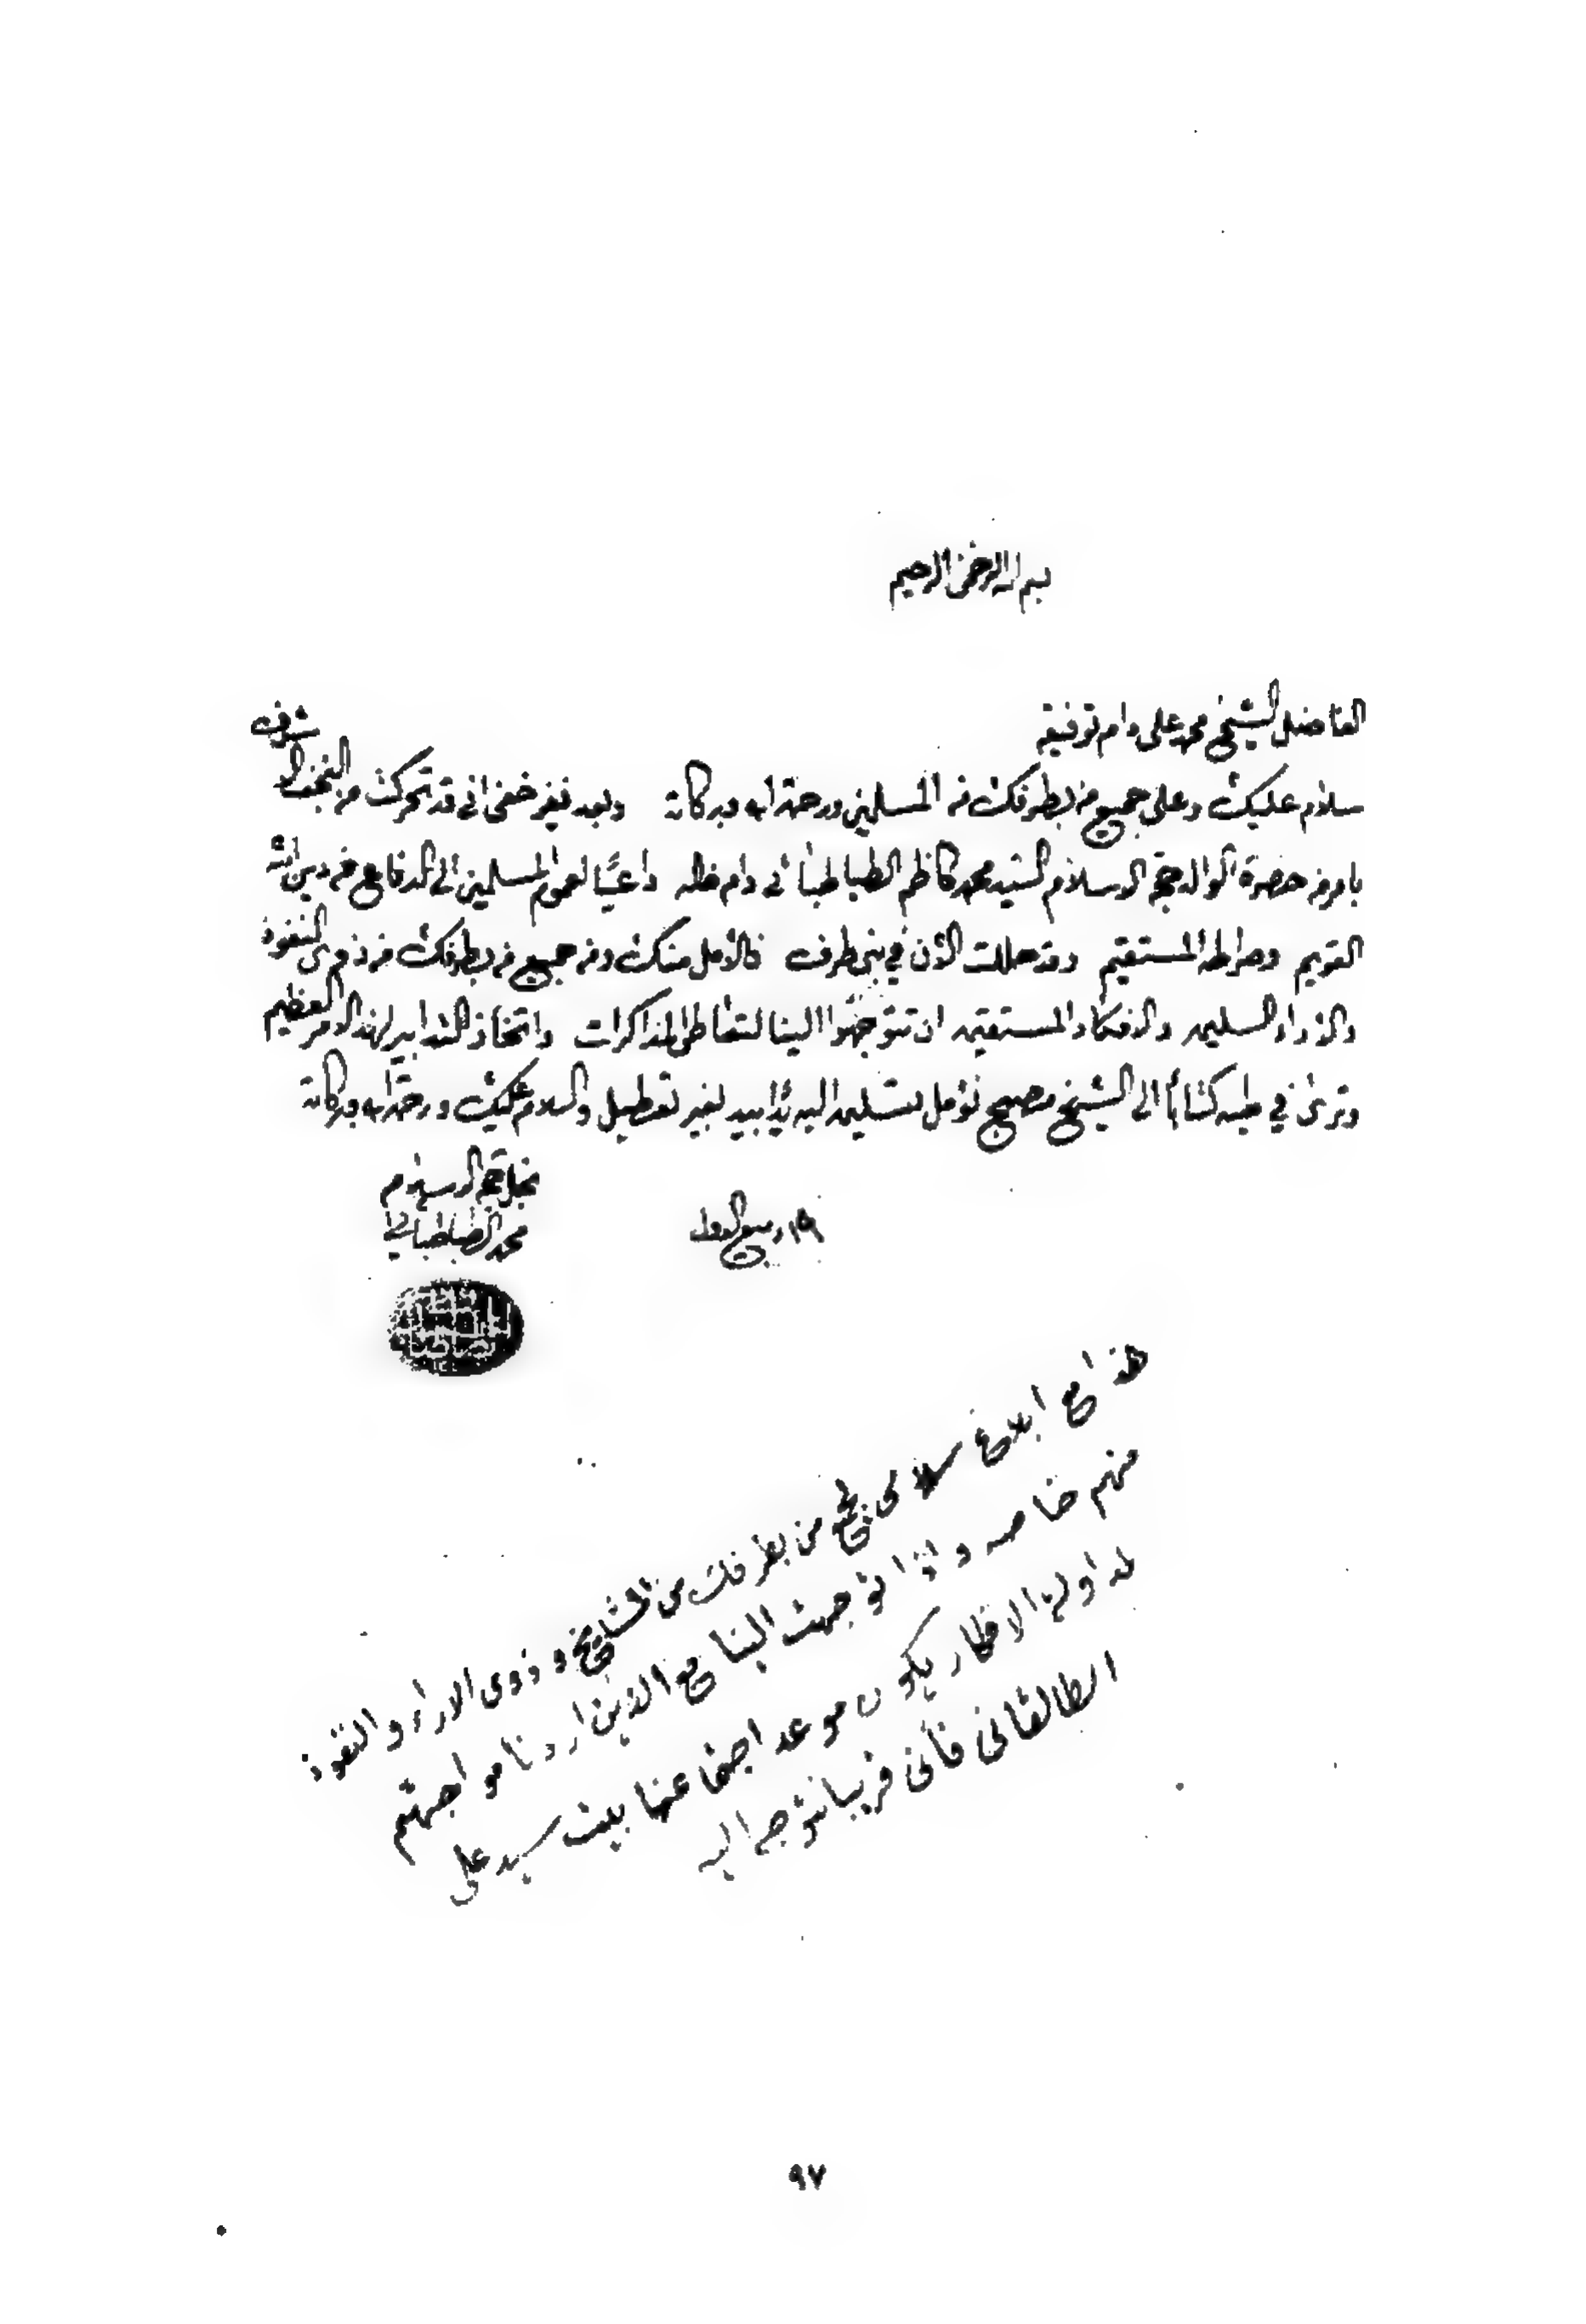 بسم الله الرحمن الرحيم
الفاضل الشيخ محمد علي دام توفيقه
سلام عليك وعلى جميع من بطرفك من المسلمين ورحمة الله وبركاته وبعد فغير خفي اني قد تحركت من النجف الاشرف
بامر من حضرة الوالد حجة الاسلام السيد محمد كاظم الطباطبائي دام ظله داعيًا لعموم المسلمين الى الدفاع عن دين الله
القويم وصراطه المستقيم وقد حللت الآن في بني طرف فالأمل منك ومن جميع من بطرفك من ذوي النفوذ
والآراء السليمه والافكار المستقيمه ان تتوجهوا الينا لتعاطي المذاكرات واتخاذ التدابير لهذا الامر العظيم
وترى في طيه كتابًا الى الشيخ مصبح نؤمل تسليمه اليه يدًا بيد بغير تعطيل والسلام عليك ورحمة الله وبركاته
نجل حجة الاسلام
محمد الطباطبائي
١٩ ربيع الاول
هذا مع ابلاغ سلامي لجميع من بطرفك من المشايخ وذوي الاراء والنفوذ
منهم خاصه واذا توجهت الينا مع الذين اردنا مواجهتهم
لمداولة الافكار يكون موعد اجتماعنا بيت سيد علي
الطالقاني فأني قريبا نتوجه اليه
٩٧